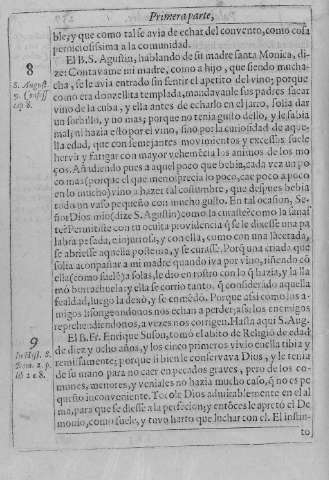 Primera parte,
ble, y que como tal se avia de echar del convento, como cosa
perniciosissima a la comunidad.
8
El B. S. Agustin, hablando de su madre santa Monica, di-
S. August.
ze: Contavame mi madre, como a hijo, que siendo mucha-
cha, se le avia entrado sin sentir el apetito del vino; porque
cap 8.
como era donzella templada, mandavanle sus padres sacar
vino de la cuba, y ella antes de echarlo en el jarro, solia dar
un sorbillo, y no mas; porque no tenia gusto dello, y le sabia
mal; ni hazia esto por el vino, sino por la curiosidad de aque-
lla edad, que con semejantes movimientos y excessos suele
hervir y fatigar con mayor vehemencia los animos de los mo
ços. Añadiendo pues a aquel poco que bebia, cada vez un po
co mas (porque el que menosprecia lo poco, cae poco a poco
en lo mucho) vino a hazer tal costumbre, que despues bebia
todo un vaso pequeño con mucho gusto. En tal ocasion, Se-
ñor Dios mio (dize S. Agustin) como la curaste? como la sanas
te? Permitiste con tu oculta providencia q̃ se le diesse una pa
labra pesada, e injuriosa, y con ella, como con una lancetada,
se abriesse aquella postema, y se curasse. Porq̃ una criada que
solia acompañar a mi madre quando iva por vino, riñendo cõ
ella (como suele) a solas, le dio en rostro con lo q̃ hazia, y la lla
mó borrachuela; y ella se corrio tanto, q̃ considerado aquella
fealdad, luego la dexó, y se comedio. Porque assi como los a-
migos lisongeandonos nos echan a perder; assi los enemigos
reprehendiendonos, a vezes nos corrigen. Hasta aqui S. Aug.
9
El B. Fr. Enrique Suson, tomó el abito de Religiõ de edad
In Hist. S.
de diez y ocho años, y los cinco primeros vivio en ella tibia y
Dom. 2. p.
remissamente; porque si bien le conservava Dios, y le tenia
lib 2 c 8.
de su mano para no caer en pecados graves, pero de los co-
munes, menores, y veniales no hazia mucho caso, q̃ no es pe
queño inconveniente. Tocóle Dios admirablemente en el al
ma, para que se diesse a la perfecion; y entõces le apretó el De
monio, como suele, y tuvo harto que luchar con el. El instin-
to